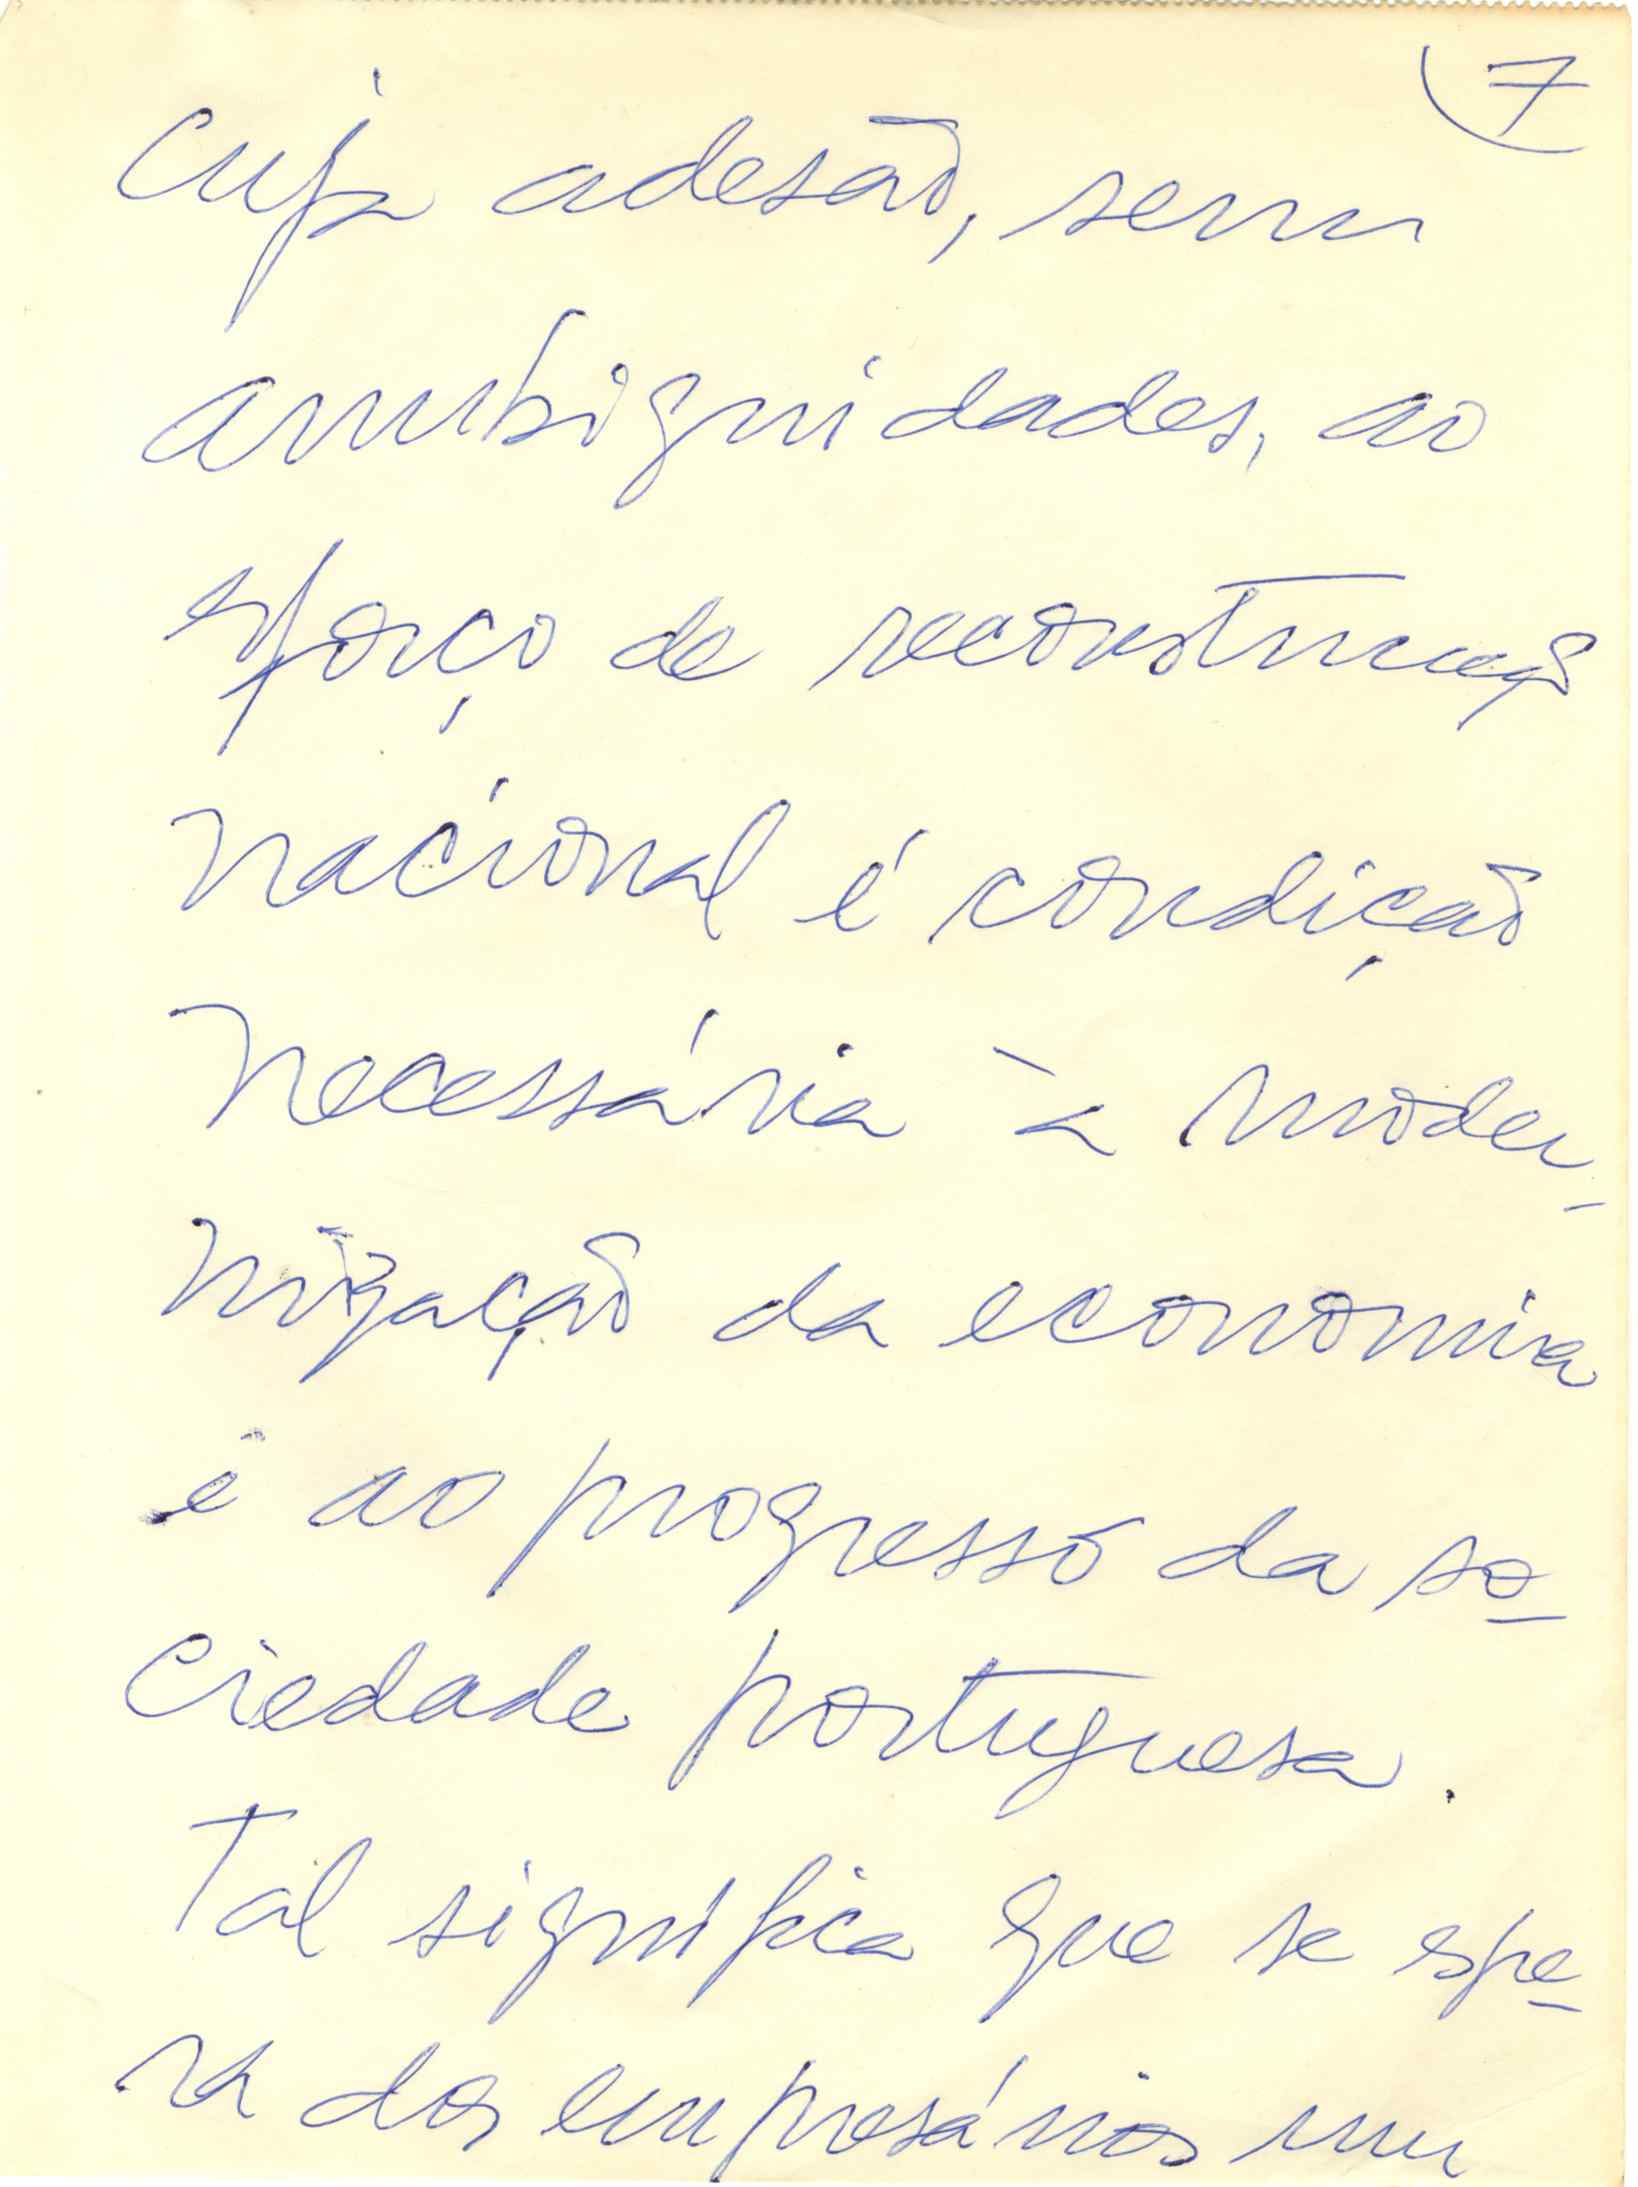 7
cuja adesão, sem
ambiguidades, ao
esforço de reconstrução
nacional é condição
necessária à moder-
nização da economia
e ao progresso da so-
ciedade portuguesa.
Tal significa que se espe-
ra dos empresários um